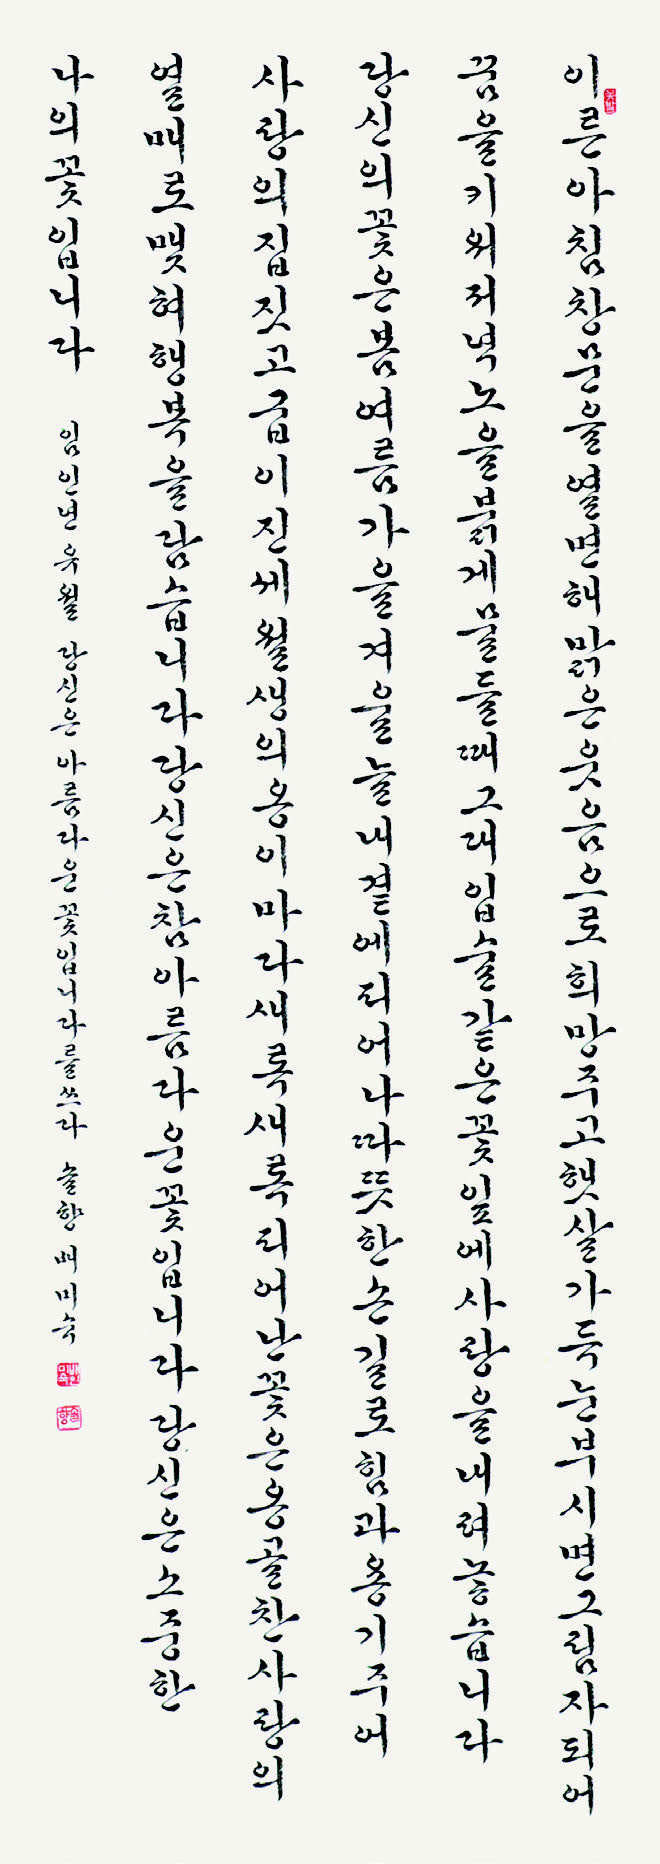 이른아침창문을열면해맑은웃음으로희망주고햇살가득눈부시면그림자되어
꿈을키워저녁노을붉게물들때그대입술같은꽃잎에사랑을내려놓습니다
당신의꽃은봄여름가을겨울늘내곁에피어나따뜻한손길로힘과용기주어
사랑의집짓고굽이진세월생의옹이마다새록새록피어난꽃은옹골찬사랑의
열매로맺혀행복을담습니다당신은참아름다운꽃입니다당신은소중한
나의꽃입니다 임인년유월 당신은아름다운꽃입니다를쓰다 솔향배미숙